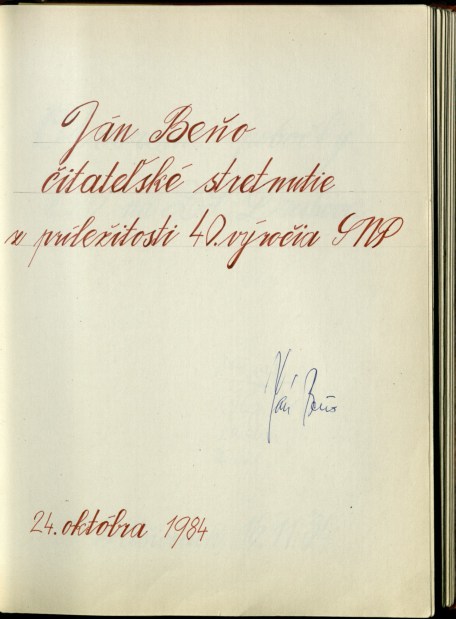 Ján Beňo
čitateľské stretnutie
z príležitosti 40. výročia SNP
Ján Beňo
24. októbra 1984